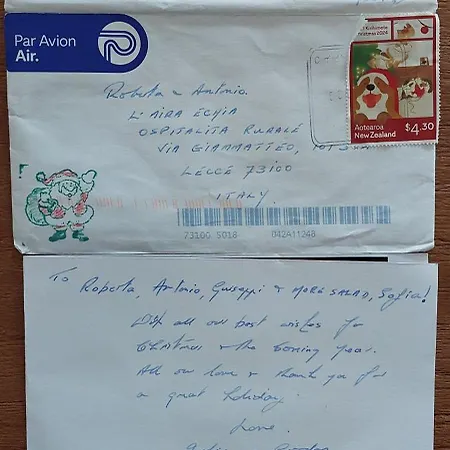 Par Avion
Air.
Kirihimete
Christmas 2024
$4.30
Aotearoa
New Zealand
Roberta & Antonio.
L'AIRA ECHIA
OSPITALITA RURALE
VIA GIAMMATTEO,
LECCE 73100
ITALY.
73100 5018 042A11248
To Roberta, Antonio, Guiseppi & MORE SALAD, Sofia!
With all our best wishes for
Christmas & the coming year.
All our love & thank you for
a great holiday.
Love